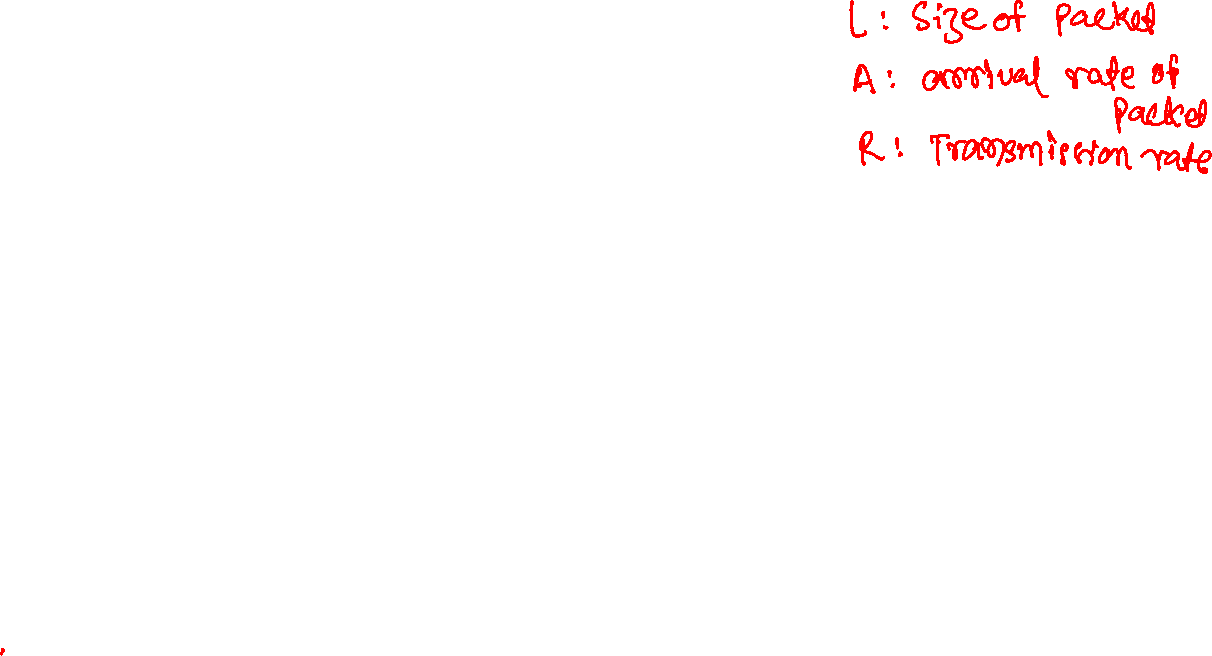 L: Size of Packet
A: arrival rate of
Packet
R: Transmission rate